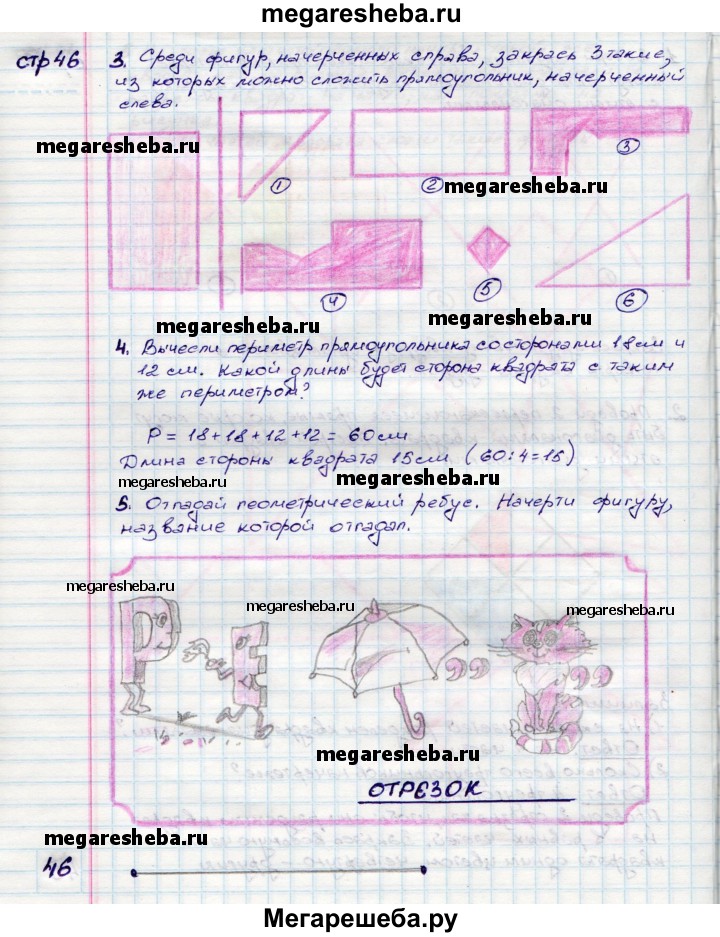 megaresheba.ru
стр 46
3. Среди фигур, начерченных справа, закрась 3 такие,
из которых можно сложить прямоугольник, начерченный
слева.
megaresheba.ru
1
2
megaresheba.ru
3
4
5
6
megaresheba.ru
megaresheba.ru
4. Вычесли периметр прямоугольника со сторонами 18 см и
12 см. Какой длины будет сторона квадрата с таким
же периметром?
P = 18 + 18 + 12 + 12 = 60 см
Длина стороны квадрата 15 см (60 : 4 = 15)
megaresheba.ru
megaresheba.ru
5. Отгадай геометрический ребус. Начерти фигуру,
название которой отгадал.
megaresheba.ru
megaresheba.ru
megaresheba.ru
Р Е
,, ,,
megaresheba.ru
ОТРЕЗОК
megaresheba.ru
46
Мегарешеба.ру